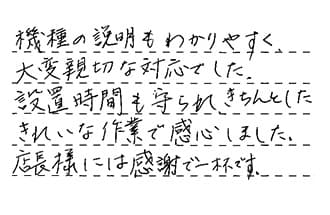 機種の説明もわかりやすく、
大変親切な対応でした。
設置時間も守られ、きちんとした
きれいな作業で感心しました。
店長様には感謝で一杯です。